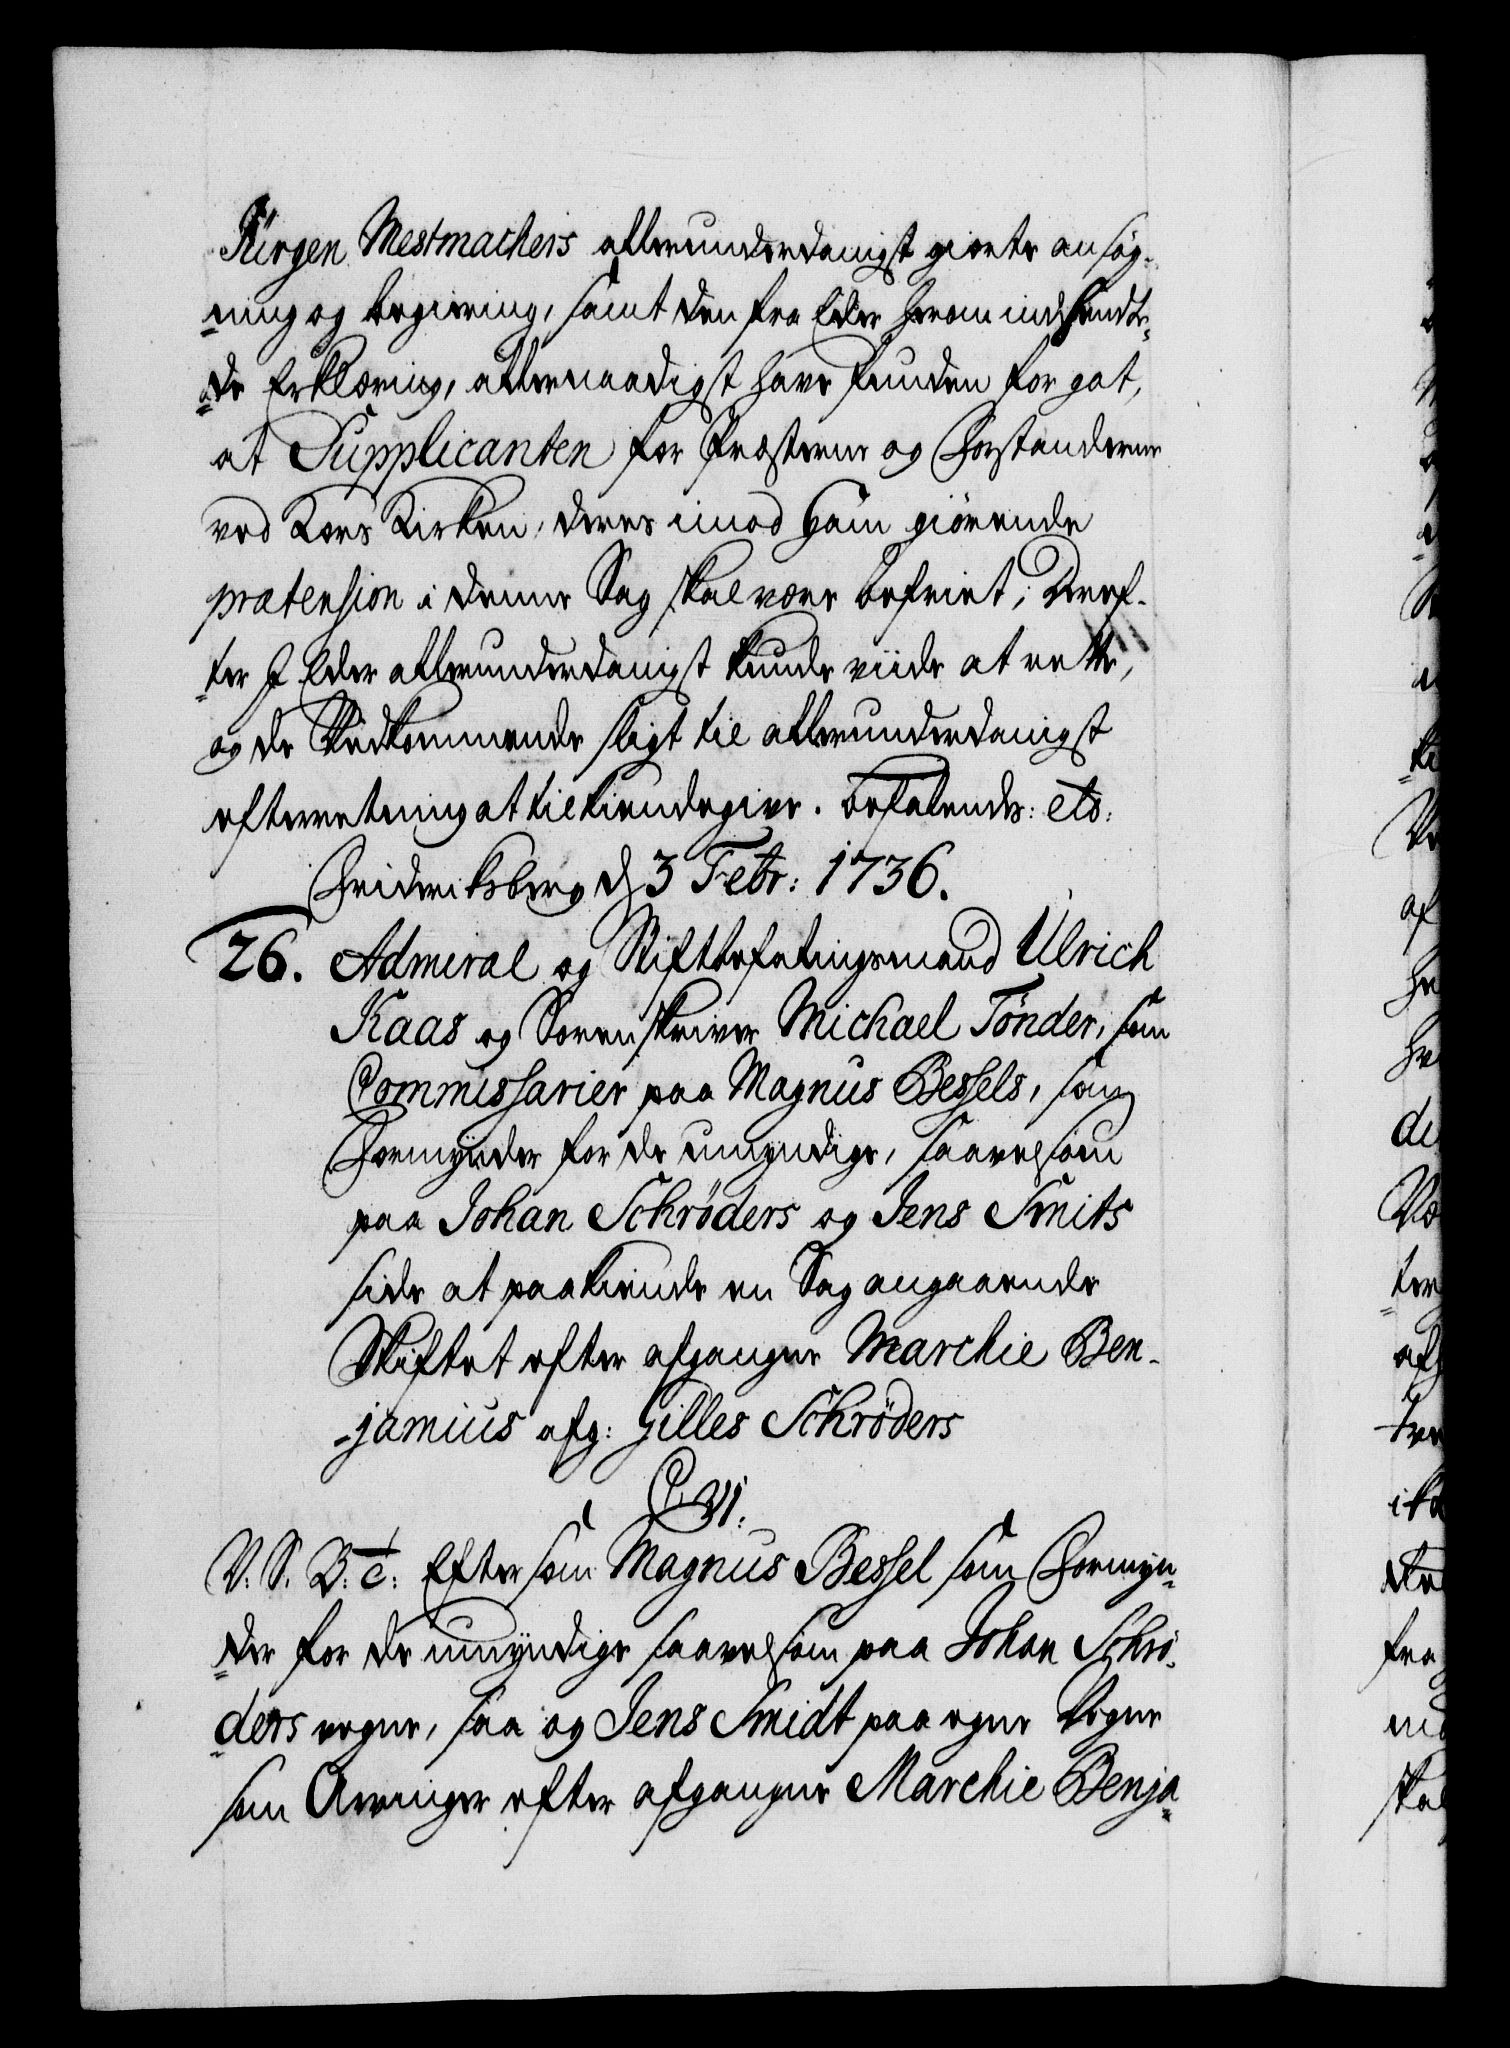 Jürgen Mestmachers allerunderdanigst giorte ansøg-
ning og begiering, samt den fra Eder herom indhendte
de Erklæring, allernaadigst have funden for got,
at Supplicanten for Præsterne og Forstanderne
ved Kors Kirken, deres imod ham giørende
prætension i denne Sag skal være befriet; Deref-
ter I Eder allerunderdanigst kunde viide at rette,
og de Vedkommende sligt til allerunderdanigst
efterretning at tilkiendegive. Befalendes: etc:
Frideriksberg d 3 Febr: 1736.
26. Admiral og Stiftbefalingsmand Ulrich
Kaas og Sorenskriver Michael Tönder, som
Commissarier paa Magnus Bessels, som
Formynder for de umyndige, saavelsom
paa Johan Schrøders og Jens Smits
side at paakiende en Sag angaaende
Skiftet efter afgangne Marchie Ben-
-jamius afg: Gilles Schrøders
C. VI:
V. S. B: c: Eftersom Magnus Bessel som Formyn-
der for de umyndige saavelsom paa Johan Schrö-
ders vegne, saa og Jens Smidt paa egne Vegne
som Arvinger efter afgangne Marchie Benja-